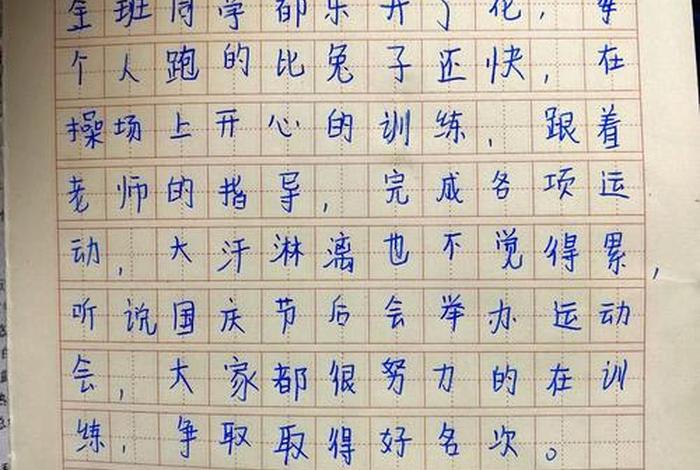 全班同学都乐开了花，每
个人跑的比兔子还快，在
操场上开心的训练，跟着
老师的指导，完成各项运
动，大汗淋漓也不觉得累，
听说国庆节后会举办运动
会，大家都很努力的在训
练，争取取得好名次。